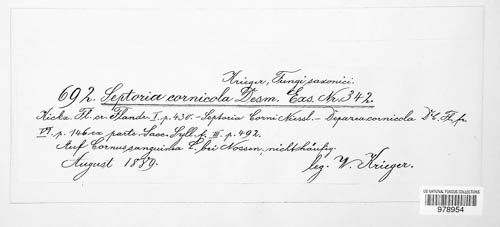 Krieger, Fungi saxonici.
692. Septoria cornicola Desm. Exs. Nr. 342.
Kickx Fl. cr. Flandr. I. p. 430. - Septoria Corni Niessl. - Depazea cornicola DC. Fl. fr.
VI. p. 146 ex parte. Sacc. Syll. f. III. p. 492.
Auf Cornus sanguinea L. bei Nossen, nicht häufig.
August 1889. leg. W. Krieger.
US NATIONAL FUNGUS COLLECTIONS
978954